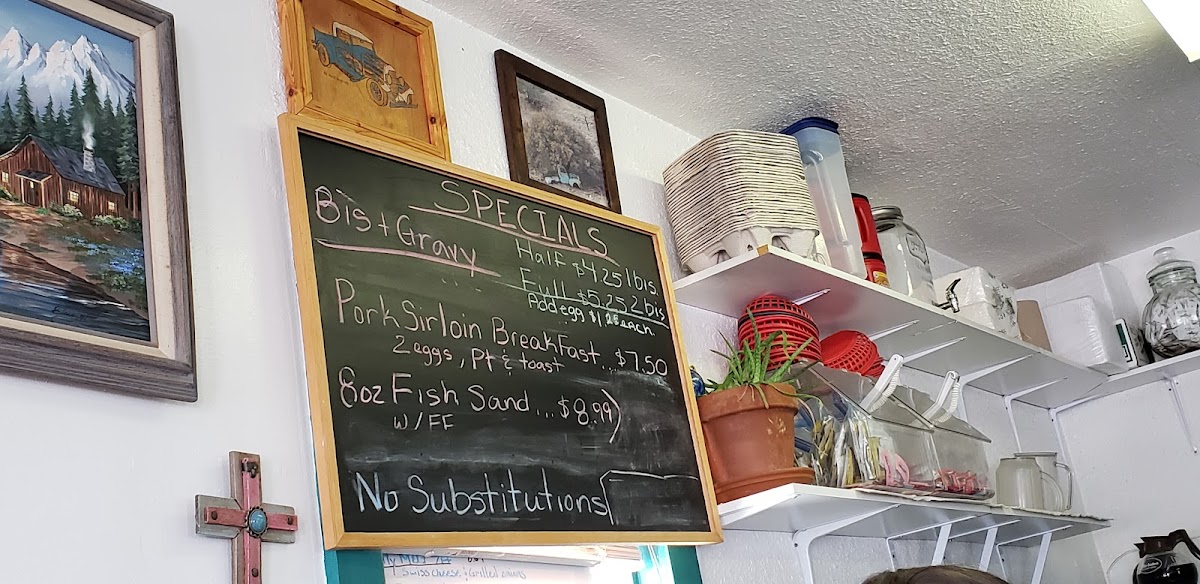 SPECIALS
Bis + Gravy
Half $4.25 1 bis.
Full $5.25 2 bis
Add egg $1.25 each
Pork Sirloin Breakfast... $7.50
2 eggs, Pt & toast
8oz Fish Sand... $8.99
w/FF
No Substitutions
Swiss cheese & Grilled onions